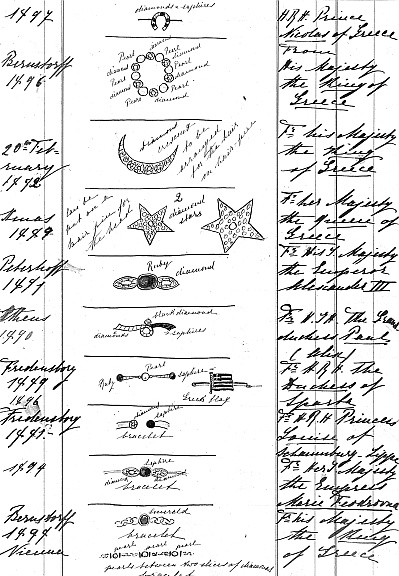 1897
diamonds & sapphires
H.R.H. Prince
Nicolas of Greece
Bernstorff
1896
Pearl
diamond
Pearl
diamond
Pearl
diamond
Pearl
diamond
Pearl
diamond
From
His Majesty
the King of
Greece
20th Feb-
ruary
1892
diamond
crescent
to be
arranged
to the hair
on hair-pin
Fr. his Majesty
the King
of Greece
Xmas
1889
can be
put on a
hair pin for
the head
2
diamond
stars
Fr. her Majesty
the Queen of
Greece
Peterhoff
1891
Ruby
diamond
Fr. His I. Majesty
the Emperor
Alexander III
Athens
1890
black diamond
diamonds
sapphires
Fr. H.I.H. The Grand
duchess Paul
(Alix)
Fredensborg
1889
1896
Ruby
Pearl
saphire
Greek flag
Fr. H.R.H. the
Duchess of
Sparta
Fredensborg
diamond
saphire
bracelet
Fr. H.R.H. Princess
Louise of
Schaumburg-Lippe
1894
saphire
diamond
diamond
bracelet
Fr. Her I. Majesty
the Empress
Marie Feodrovna
Bernstorff
1897
Vienne
emerald
bracelet
pearl pearl pearl
pearls between two slices of diamond
bracelet
Fr. his Majesty
the King
of Greece